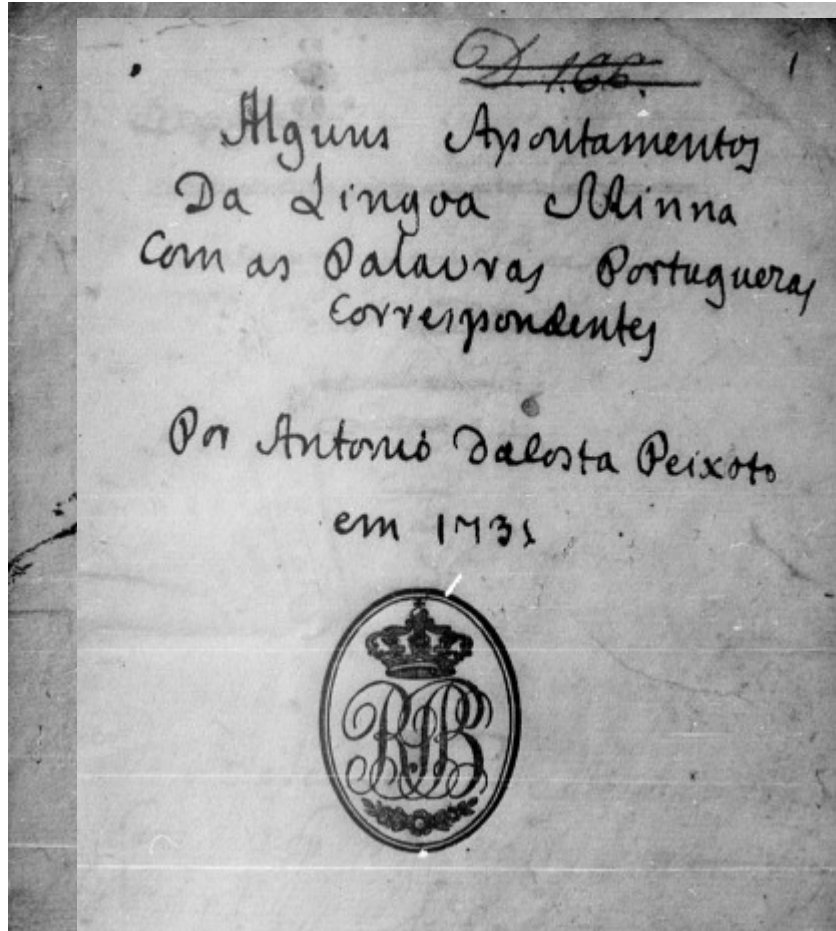 D. 166.
1
Alguns Apontamentos
Da Lingoa Minna
Com as Palauras Portuguezas
Correspondentes
Por Antonio DaCosta Peixoto
em 1731